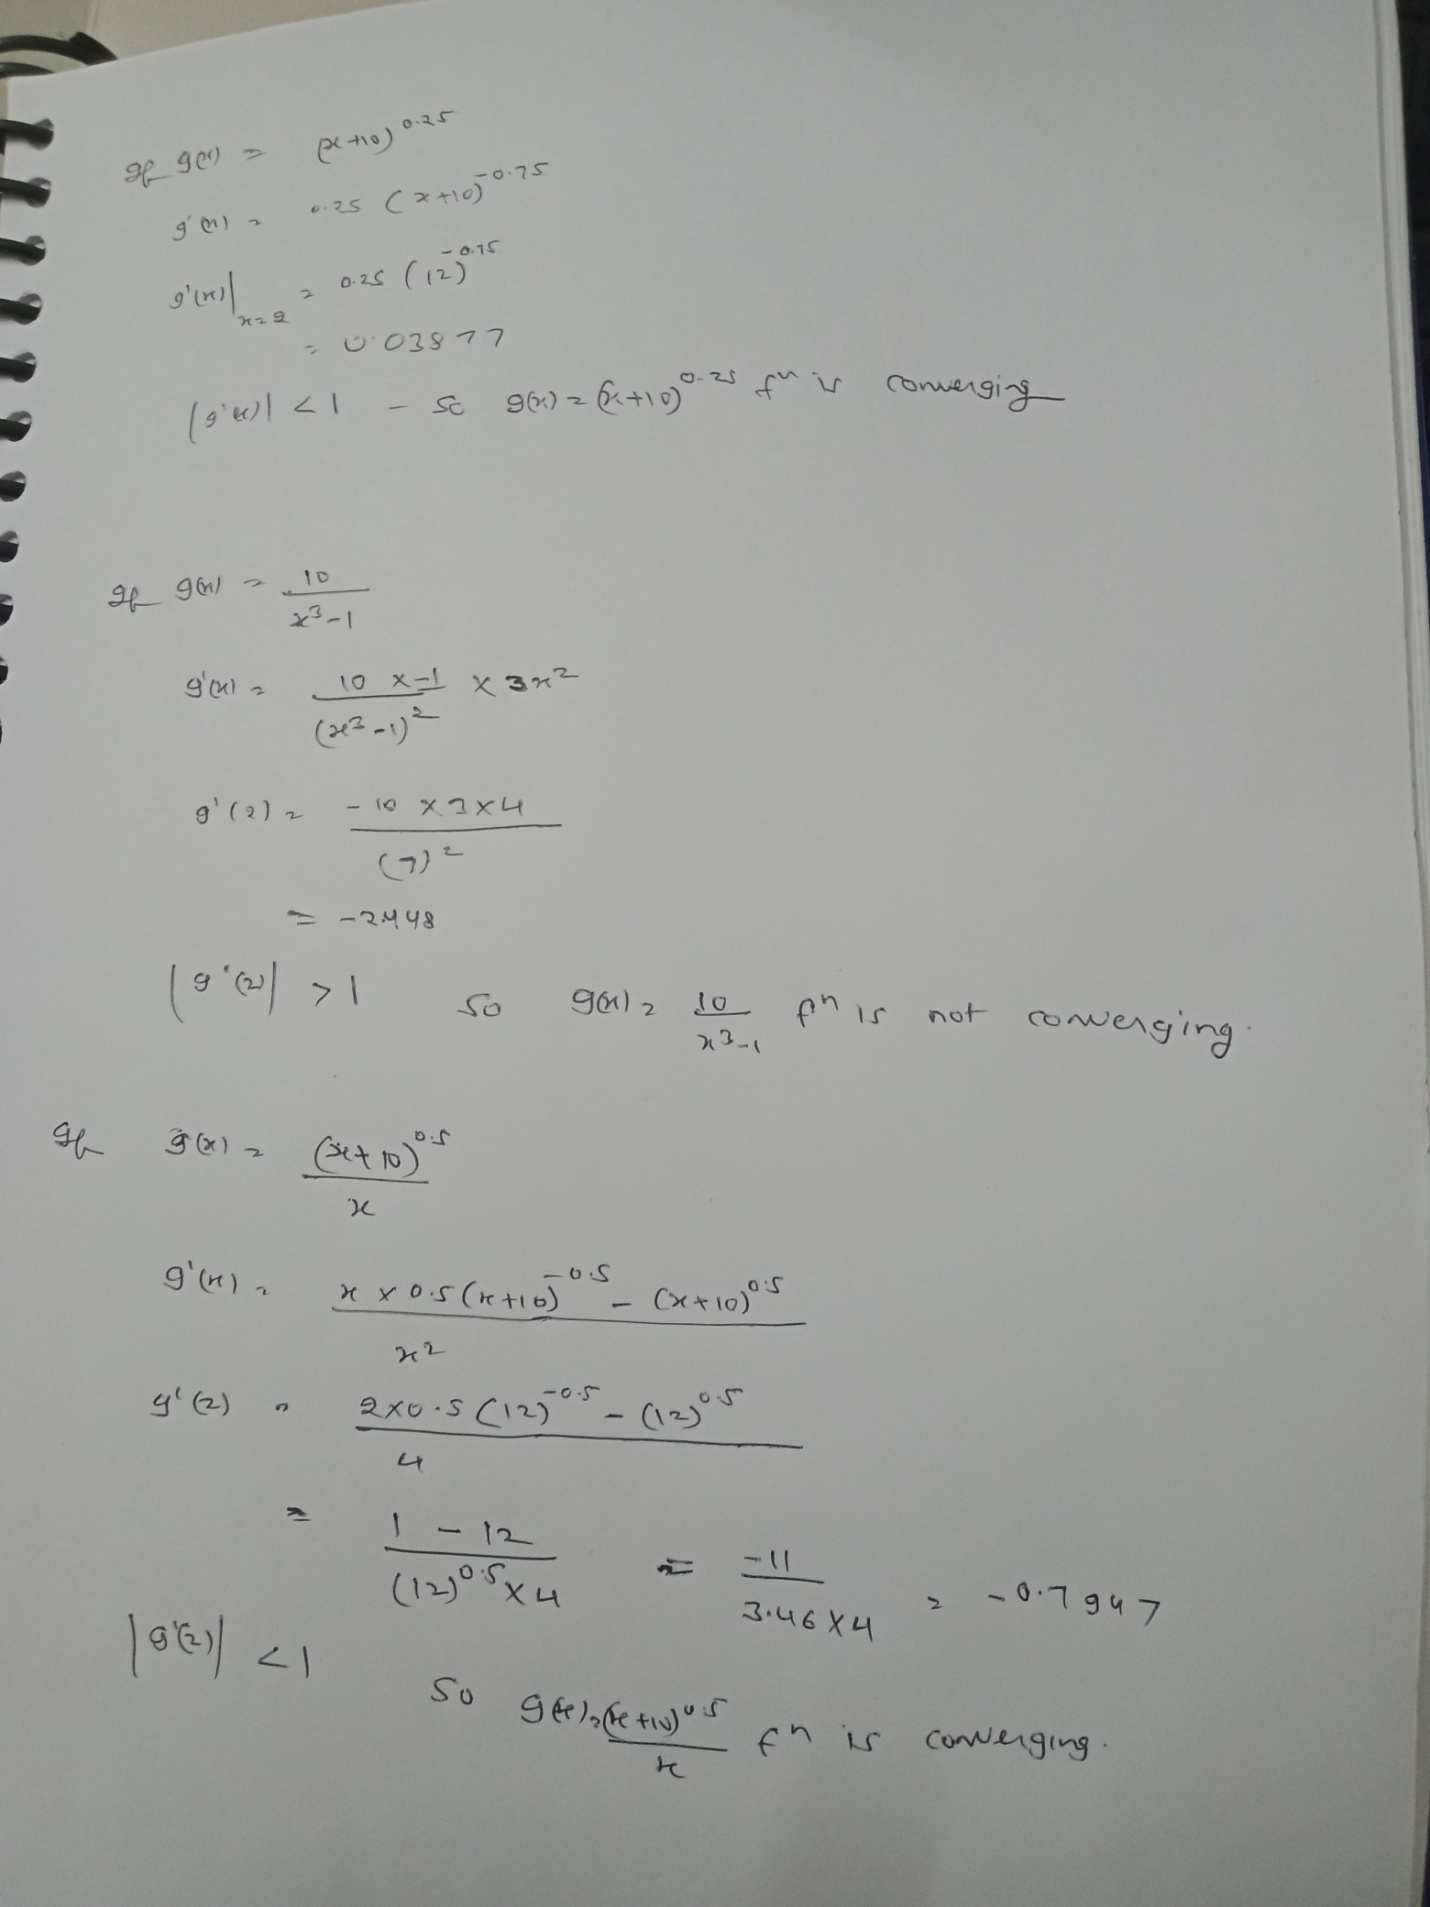 If g(x) = (x+10)^0.25
g'(x) = 0.25 (x+10)^-0.75
g'(x)|x=2 = 0.25 (12)^-0.75
= 0.03877
|g'(x)| < 1 - so g(x) = (x+10)^0.25 fn is converging
If g(x) = 10/(x^3-1)
g'(x) = (10 x -1)/(x^3-1)^2 x 3x^2
g'(2) = (-10 x 3 x 4)/(7)^2
= -2.448
|g'(2)| > 1 so g(x) = 10/(x^3-1) fn is not converging.
If g(x) = (x+10)^0.5/x
g'(x) = (x x 0.5(x+10)^-0.5 - (x+10)^0.5)/x^2
g'(2) = (2x0.5(12)^-0.5 - (12)^0.5)/4
= (1-12)/((12)^0.5 x 4) = -11/(3.46 x 4) = -0.7947
|g'(2)| < 1
so g(x) = (x+10)^0.5/x fn is converging.